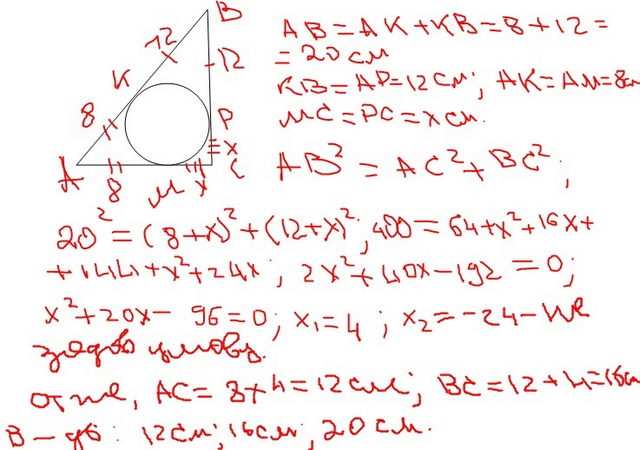 B
12
12
K
8
P
x
A
8
M
x
C
AB = AK + KB = 8 + 12 =
= 20 см
KB = AP = 12 см; AK = AM = 8см
MC = PC = x см.
AB² = AC² + BC²;
20² = (8+x)² + (12+x)²; 400 = 64 + x² + 16x +
+ 144 + x² + 24x; 2x² + 40x - 192 = 0;
x² + 20x - 96 = 0; x₁ = 4; x₂ = -24 - не
задов умову.
отже, AC = 8 + 4 = 12 см; BC = 12 + 4 = 16см
В-дь: 12 см; 16 см; 20 см.